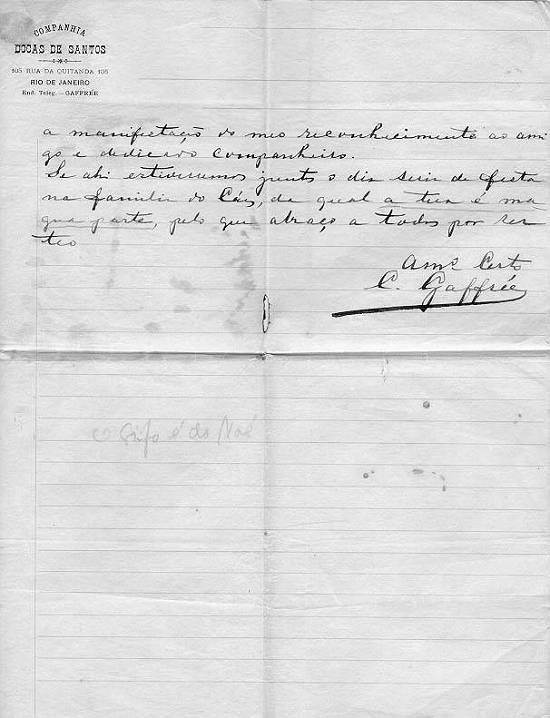 COMPANHIA
DOCAS DE SANTOS
105 RUA DA QUITANDA 105
RIO DE JANEIRO
End. Teleg. - GAFFRÉE
a manifestação do meo reconhecimento ao ami
go e dedicado companheiro.
Se ahi estivessemos juntos o dia seria de festa
na familia do Cáes, da qual a tua é ma
gna parte, pelo que abraço a todos por ser
teo
Amº Certo
C. Gaffrée
o Grifo é do Noé